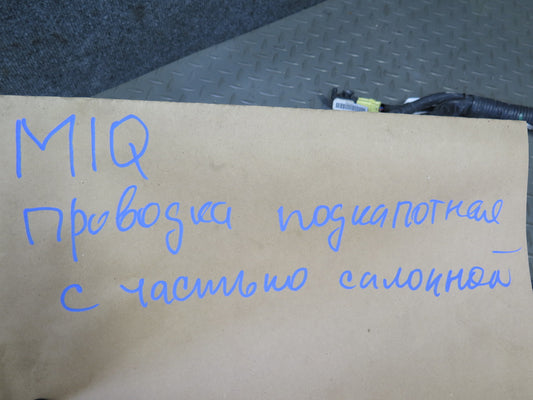 MIQ
проводка подкапотная
с частью салонной